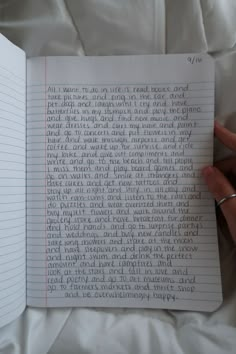 9/10
All I want to do in life is read books and
take pictures and sing in the car and
pet dogs and laugh until I cry and have
butterflies in my stomach and play the piano
and give hugs and find new music and
wear dresses and curl my hair and paint
and go to concerts and put flowers in my
hair and walk through airports and get
coffee and wake up for sunrise and ride
my bike and give out compliments and
write and go to the beach and tell people
I miss them and play board games and
go on walks and smile at strangers and
bake cakes and get new tattoos and
stay up all night and stay in the sun and
watch and listen to the rain and
do puzzles and wear oversized shirts and
buy myself flowers and walk around the
grocery store and have breakfast for dinner
and hold hands and go to surprise partys
and weddings and buy new candles and
take long showers and stare at the moon
and have sleepovers and play in the snow
and night swim and drink the perfect
amount and have campfires and
look at the stars and fall in love and
read poetry and go to art museums and
go to farmers markets and thrift shop
and be overwhelmingly happy.